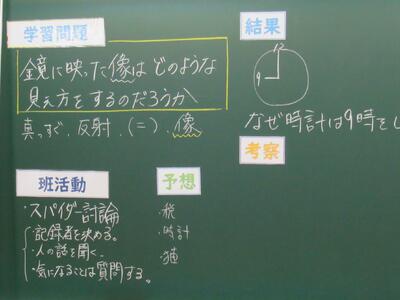 学習問題
鏡に映った像はどのような
見え方をするのだろうか
真っすぐ、反射、(=)、像
班活動
・スパイダー討論
・記録者を決める。
・人の話を聞く。
・気になることは質問する。
予想
・税
・時計
・猫
結果
12
9
なぜ時計は9時をし
考察